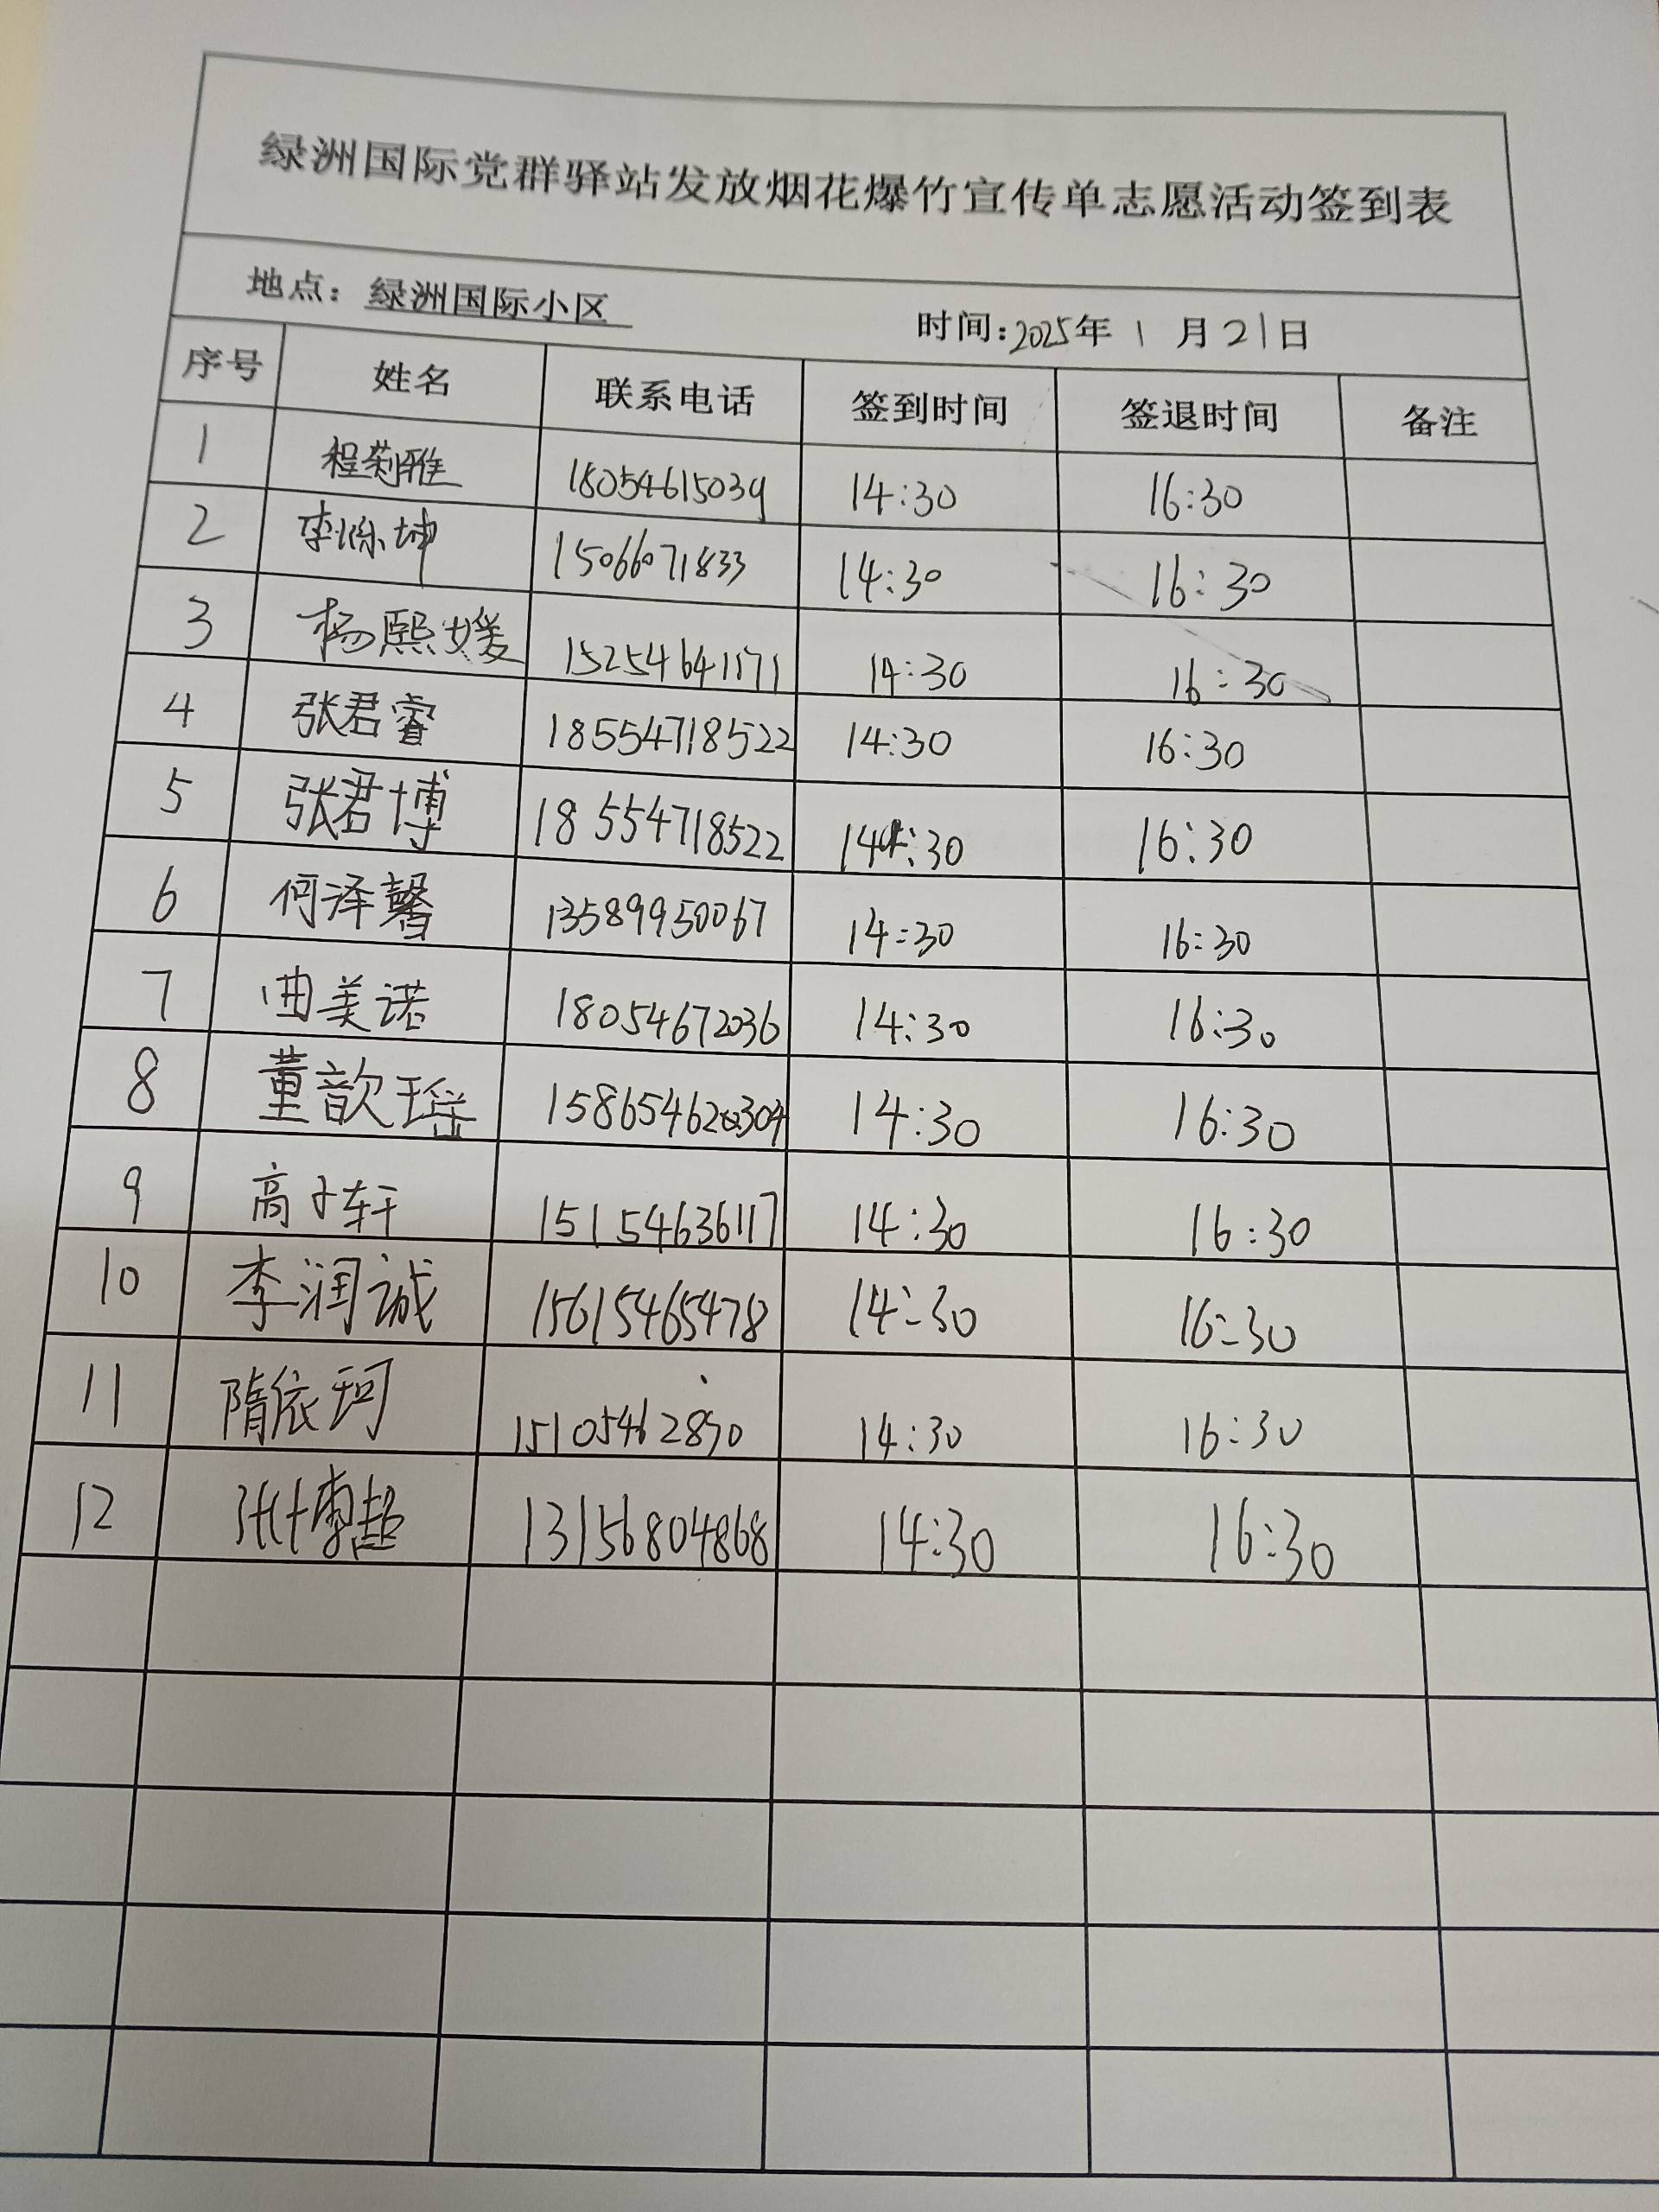 绿洲国际党群驿站发放烟花爆竹宣传单志愿活动签到表
地点：绿洲国际小区 时间：2025年 1 月 21 日
序号 姓名 联系电话 签到时间 签退时间 备注
1 程菊雅 18054615039 14:30 16:30
2 李 坤 15066071833 14:30 16:30
3 杨熙媛 15254641171 14:30 16:30
4 张君睿 18554718522 14:30 16:30
5 张君博 18554718522 14:30 16:30
6 何泽馨 13589950067 14:30 16:30
7 曲美诺 18054672036 14:30 16:30
8 董歆瑶 14:30 16:30
9 高子轩 15154636117 14:30 16:30
10 李润诚 15615465478 14:30 16:30
11 隋依珂 14:30 16:30
12 13156804868 14:30 16:30